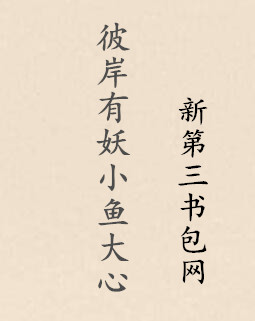 彼岸有妖小鱼大心
新第三书包网